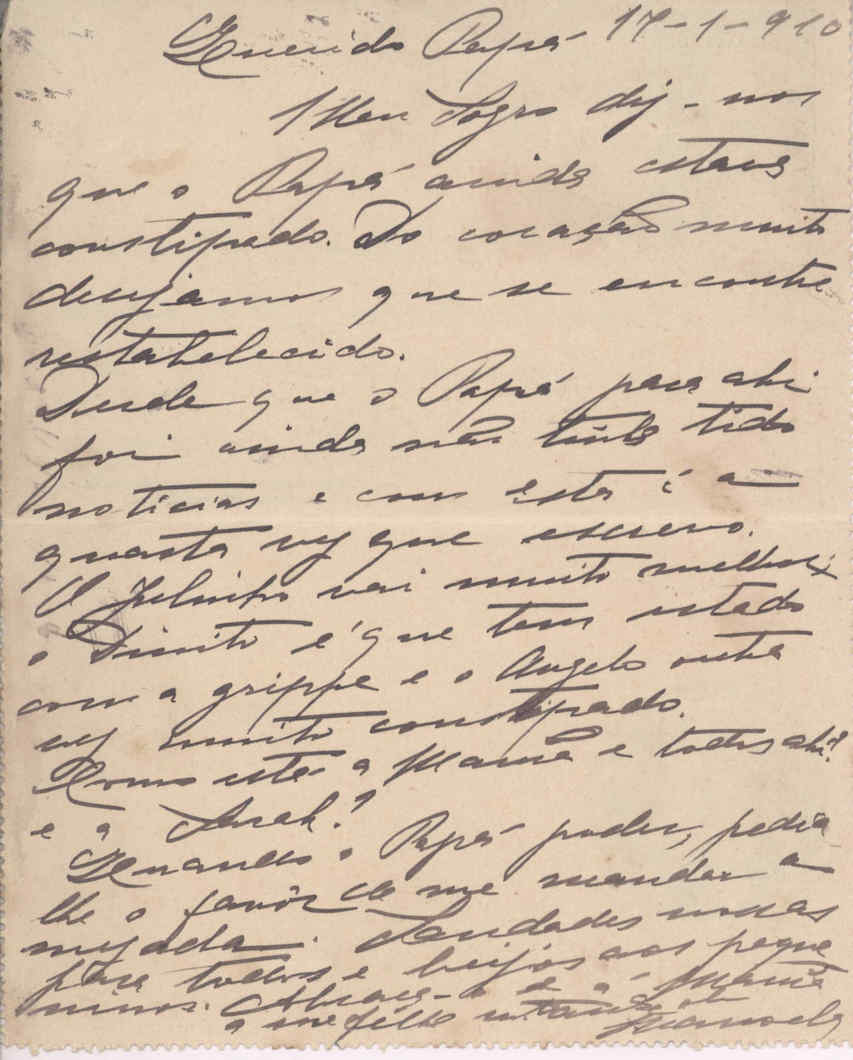 Querido Papá 17-1-910
Meu Sogro diz-nos
que o Papá ainda estava
constipado. Do coração muito
desejamos que se encontre
restabelecido.
Desde que o Papá para ahi
foi ainda não tinha tido
noticias e com esta é a
quarta vez que escrevo.
O Julinho vai muito melhor;
o é que tem estado
com a grippe e o Angelo outra
vez muito constipado.
Como está a Mamã e todos ahi?
e a Sarah?
Quando o Papá poder, pedia
lhe o favôr de me mandar a
mezada. Saudades nossas
para todos e beijos aos peque
ninos. Abraça-o e á Mamã
a sua filha
Manoela